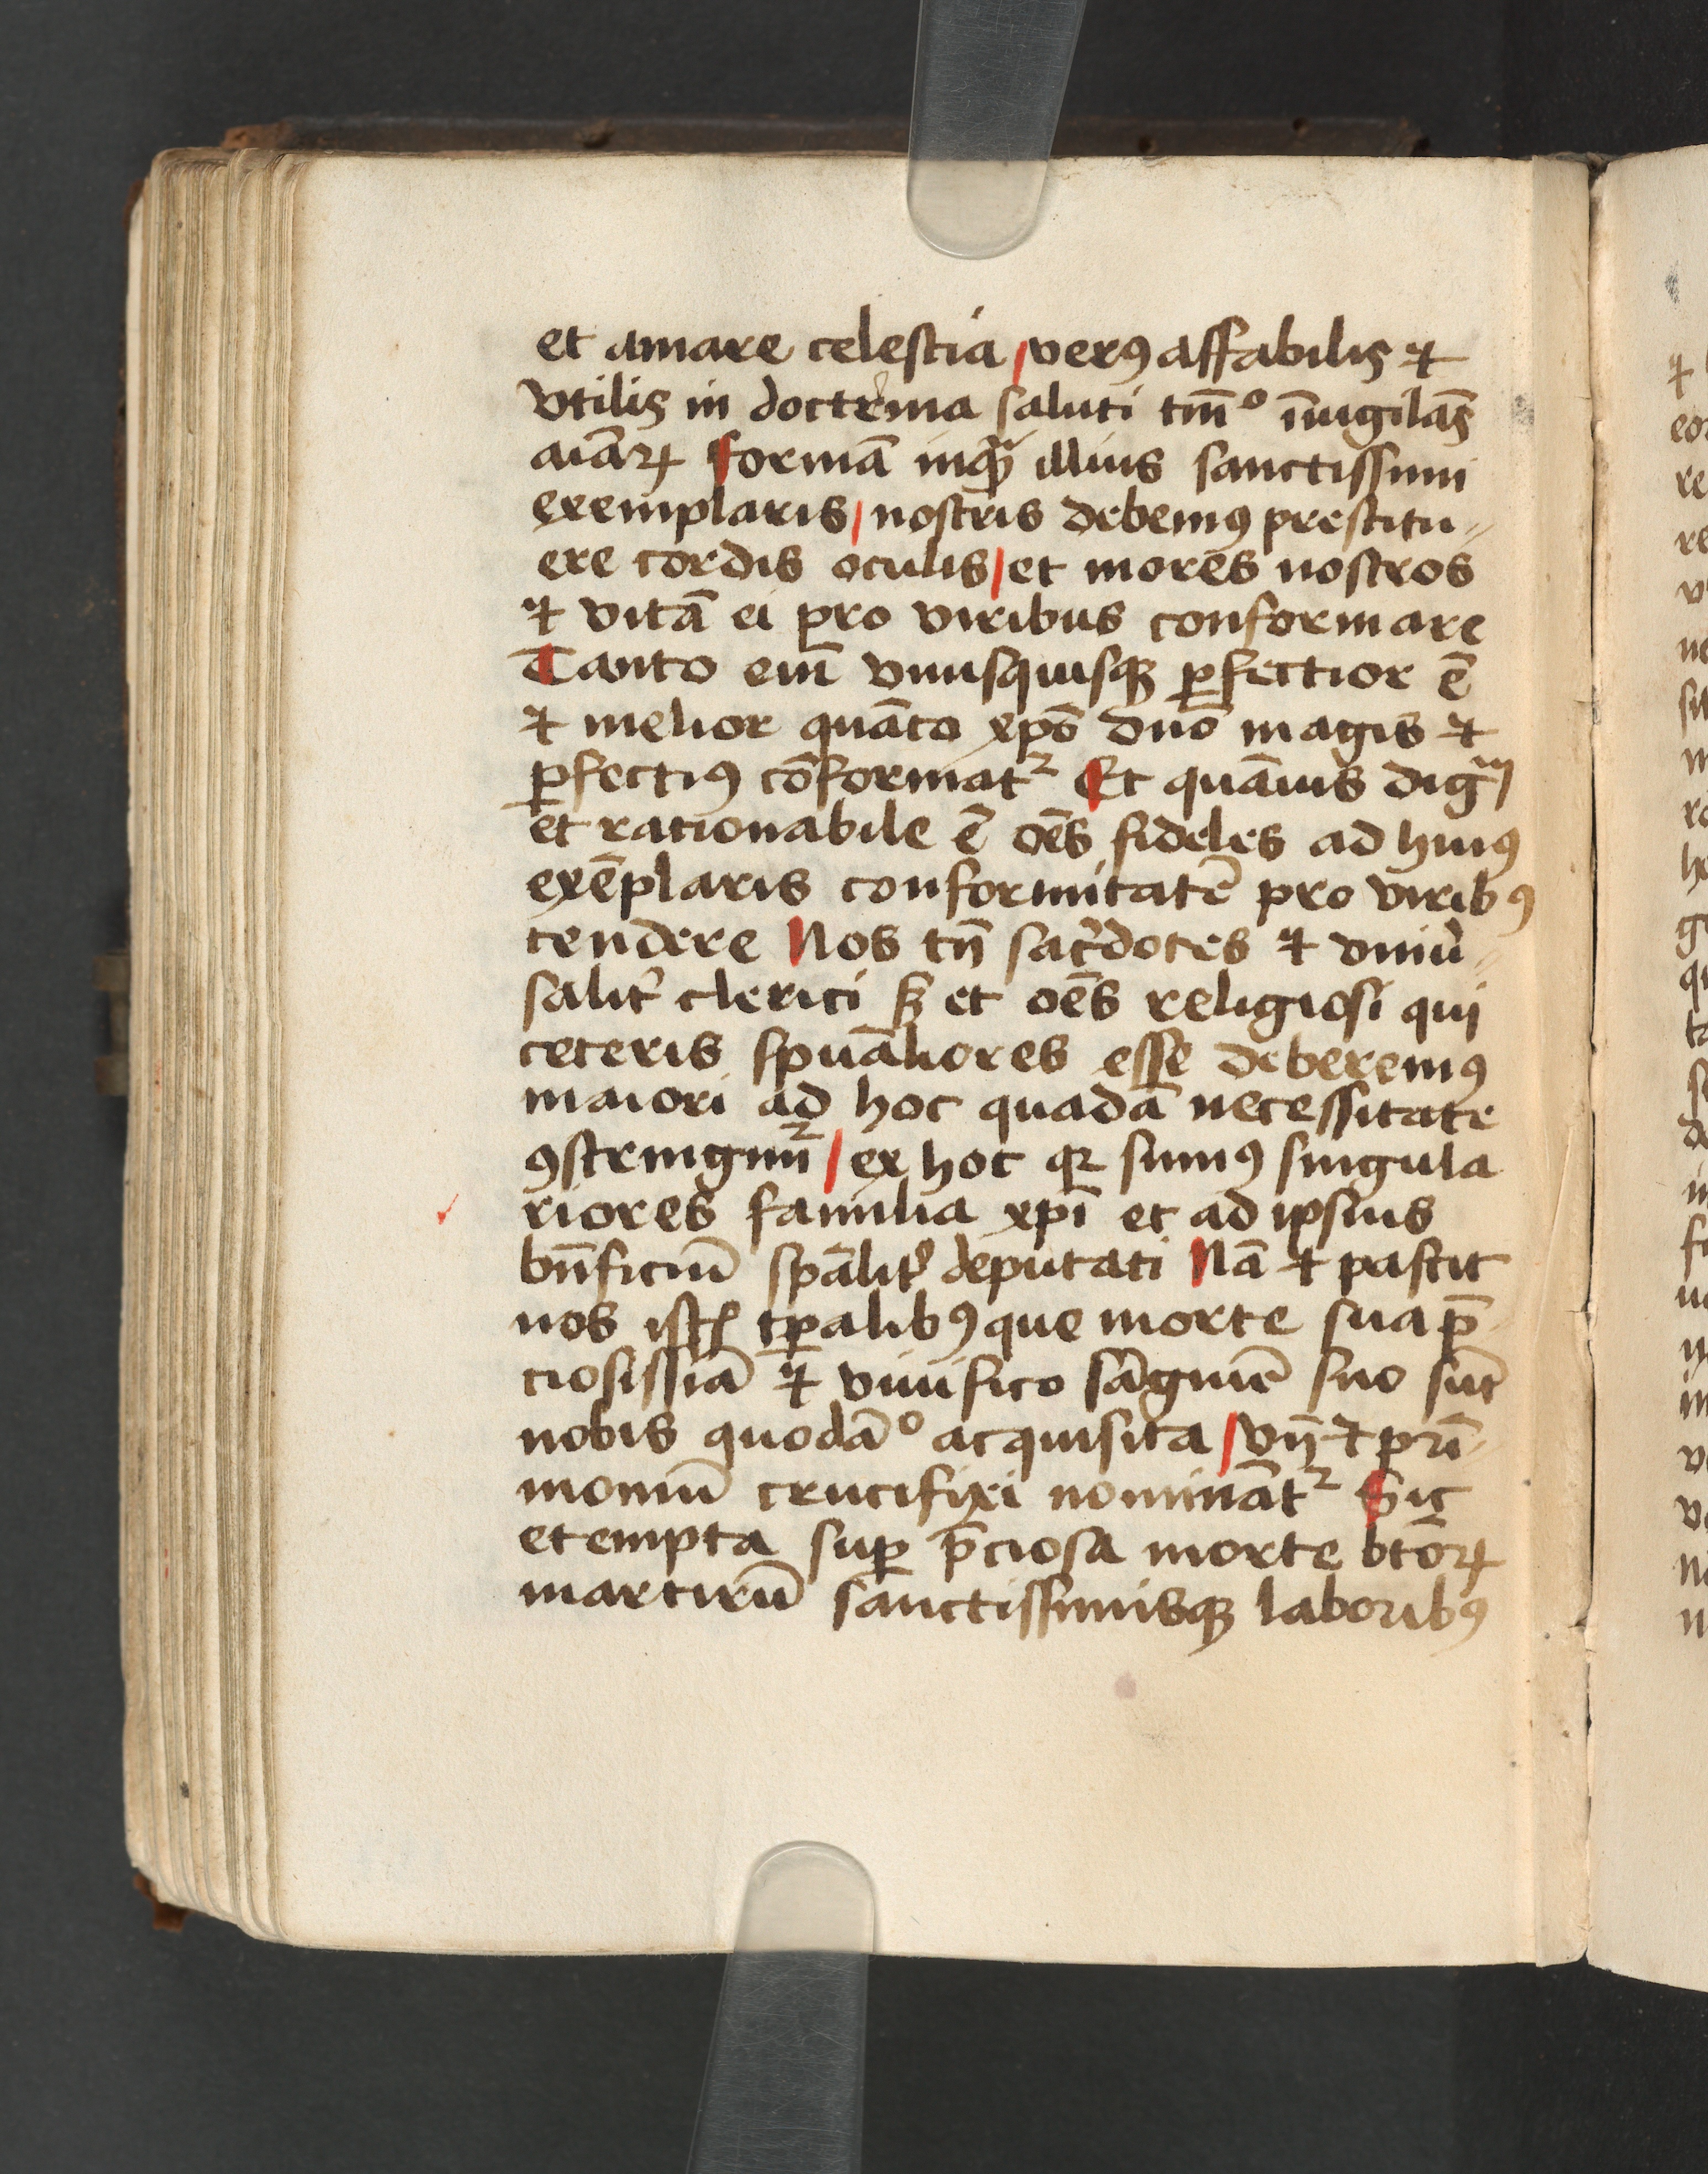 et amare celestia / verꝰ affabilis ⁊
vtilis in doctrina saluti tm̄° īuigilās
aīaꝝ formā inqᷓ illius sanctissimi
exemplaris / nostris debemꝰ prestitu⸗
ere cordis oculis / et mores nostros
⁊ vitā ei pro viribus conformare
Tanto eī vnusquisqꝫ ꝑfectior ē
⁊ melior quāto xp̄o dn̄o magis ⁊
ꝑfectiꝰ cōformatᷣ Et quāuis dignū
et rationabile ē oēs fideles ad huiꝰ
exēplaris conformitatē pro viribꝰ
tendere Nos tn̄ sac̓dotes ⁊ vniu̓⸗
salit̓ clerici sꝫ et oēs religiosi qui
ceteris spūāliores esse deberemꝰ
maiori ad hoc quadā necessitate
ꝯstringimᷣ / ex hoc qꝛ sumꝰ singula
riores familia xp̄i et ad ipsius
bn̄ficiū sp̄alit̓ deputati Nā ⁊ pascit
nos istis tꝑalibꝰ que morte sua p̄⸗
ciosissīa ⁊ viuifico sāguīe suo sūt
nobis quodā° acquisita / vn̄ ⁊ pr̄i⸗
moniū crucifixi nominātᷣ Sic
et empta suꝑ p̄ciosa morte btōꝝ
martirū sanctissimisqꝫ laboribꝰ